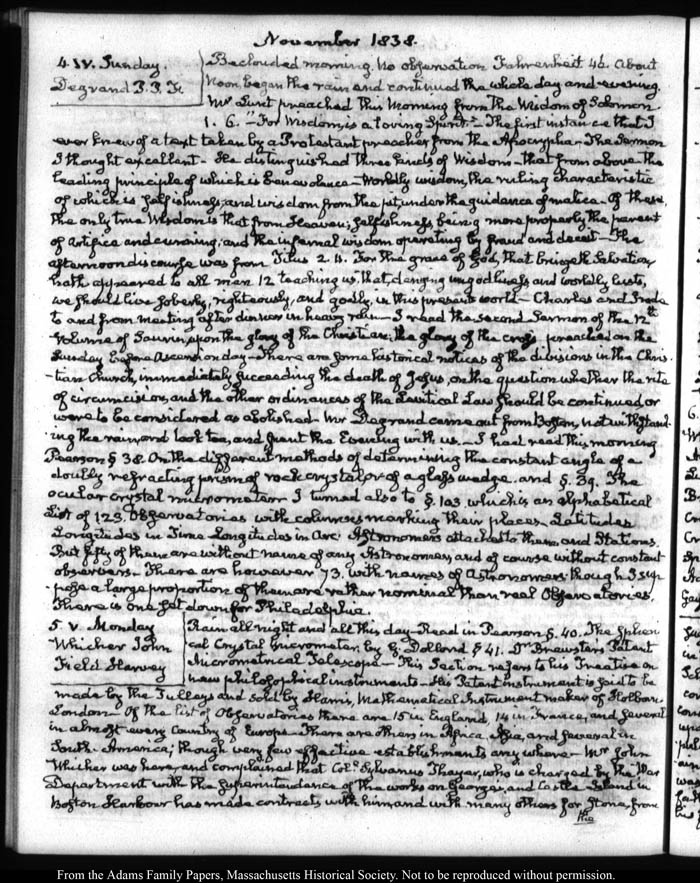 November 1838.
4. IV. Sunday.
Degrand P. P. F.
Beclouded morning. No observation Fahrenheit 46. About
Noon began the rain and continued the whole day and evening.
Mr Lunt preached this Morning from the Wisdom of Solomon
1. 6. "For Wisdom, is a loving Spirit" The first instance that I
ever knew of a text taken by a Protestant preacher from the Apocrypha— The Sermon
I thought excellent— He distinguished three kinds of Wisdom— that from above the
leading principle of which is Benevolence— Worldly wisdom, the ruling characteristic
of which is selfishness, and wisdom from the pit, under the guidance of malice— Of these,
the only true Wisdom is that from Heaven; selfishness, being more properly the parent
of artifice and cunning; and the infernal wisdom operating by fraud and deceit— The
afternoon discourse was from Titus 2. 11. For the grace of God, that bringeth Salvation,
hath appeared to all men 12 teaching us, that, denying ungodliness and worldly lusts,
we should live soberly, righteously, and godly, in this present world— Charles and I rode
to and from meeting after dinner in heavy rain— I read the second Sermon of the 12th
Volume of Saurin, upon the glory of the Christian; the glory of the cross preached on the
Sunday before Ascension day— There are some historical notices of the divisions in the Chris-
-tian Church, immediately succeeding the death of Jesus, on the question whether the rite
of circumcision, and the other ordinances of the Levitical Law should be continued, or
were to be considered as abolished— Mr Degrand came out from Boston, notwithstand-
-ing the rain, and took tea, and spent the Evening with us.— I had read this morning
Pearson § 38. On the different methods of determining the constant angle of a
doubly refracting prism of rock crystal, or of a glass wedge. and §. 39. The
ocular crystal micrometer. I turned also to §. 103, which is an alphabetical
List of 123. Observatories with columns marking their places— Latitudes
Longitudes in Time— Longitudes in Arc— Astronomers attached to them and Stations.
But fifty of them are without name of any Astronomer, and of course without constant
observers— There are however 73. with names of Astronomers though I sup-
-pose a large proportion of them are rather nominal than real Observatories.
There is one set down for Philadelphia.
5. V. Monday
Whicher John
Field Harvey
Rain all night and all this day— Read in Pearson §. 40. The Spher-
ical Crystal Micrometer, by G. Dollond § 41. Dr Brewster's Patent
Micrometrical Telescope— This Section refers to his Treatise on
new philosophical instruments— His Patent instrument is said to be
made by the Tulleys and sold by Harris, Mathematical Instrument maker of Holborn
London— Of the list of Observatories there are 15 in England, 14 in France, and several
in almost every Country of Europe. There are them in Africa, Asia, and several in
South America; though very few effective establishments any where— Mr John
Whicher was here, and complained that Col. Sylvanus Thayer, who is charged by the War
Department with the Superintendance of the works on Georges, and Castle Island in
Boston Harbour has made contracts with him, and with many others for stone, from
the
From the Adams Family Papers, Massachusetts Historical Society. Not to be reproduced without permission.